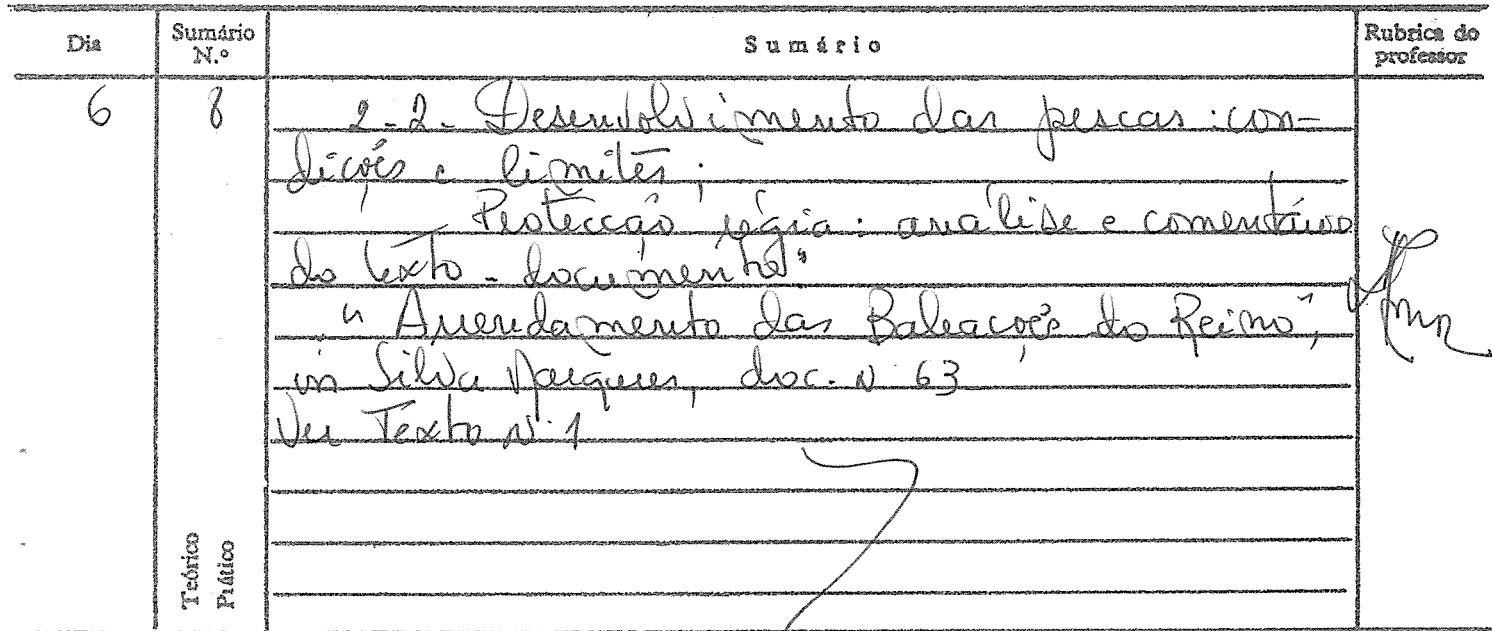 Dia
Sumário N.º
Sumário
Rubrica do professor
6
8
2-2- Desenvolvimento das pescas: con-
dições e limites;
Protecção régia: análise e comentário
do texto-documento"
"Arrendamento das Baleações do Reino",
in Silva Marques, doc. N 63
Ver Texto Nº 1
Teórico
Prático